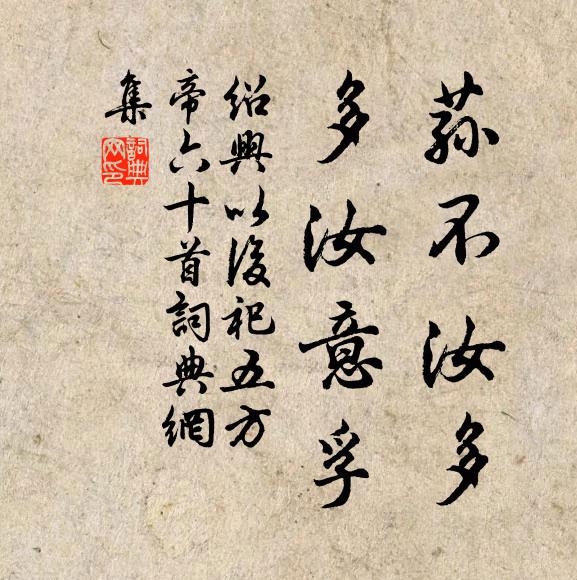 荪不汝多
多汝意孚
绍興以後祀五方
帝六十首詞典網
集
詞典網印